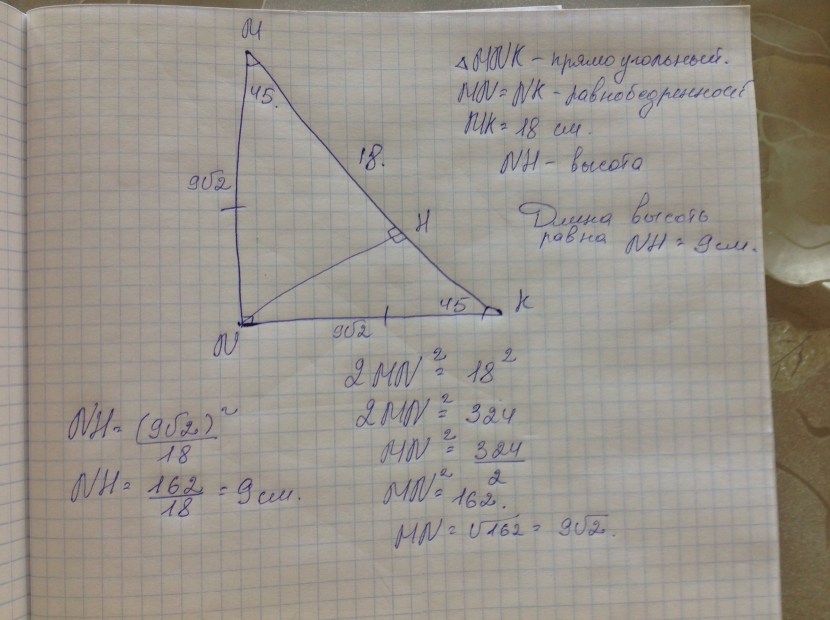 M
45.
9√2
18.
H
45
K
N
9√2
△ MNK - прямоугольный.
MN = NK - равнобедренност
MK = 18 см.
NH - высота
Длина высоть
равна NH = 9 см.
2MN² = 18²
2MN² = 324
MN² = 324/2
MN² = 162.
MN = √162 = 9√2.
NH = (9√2)²/18
NH = 162/18 = 9 см.